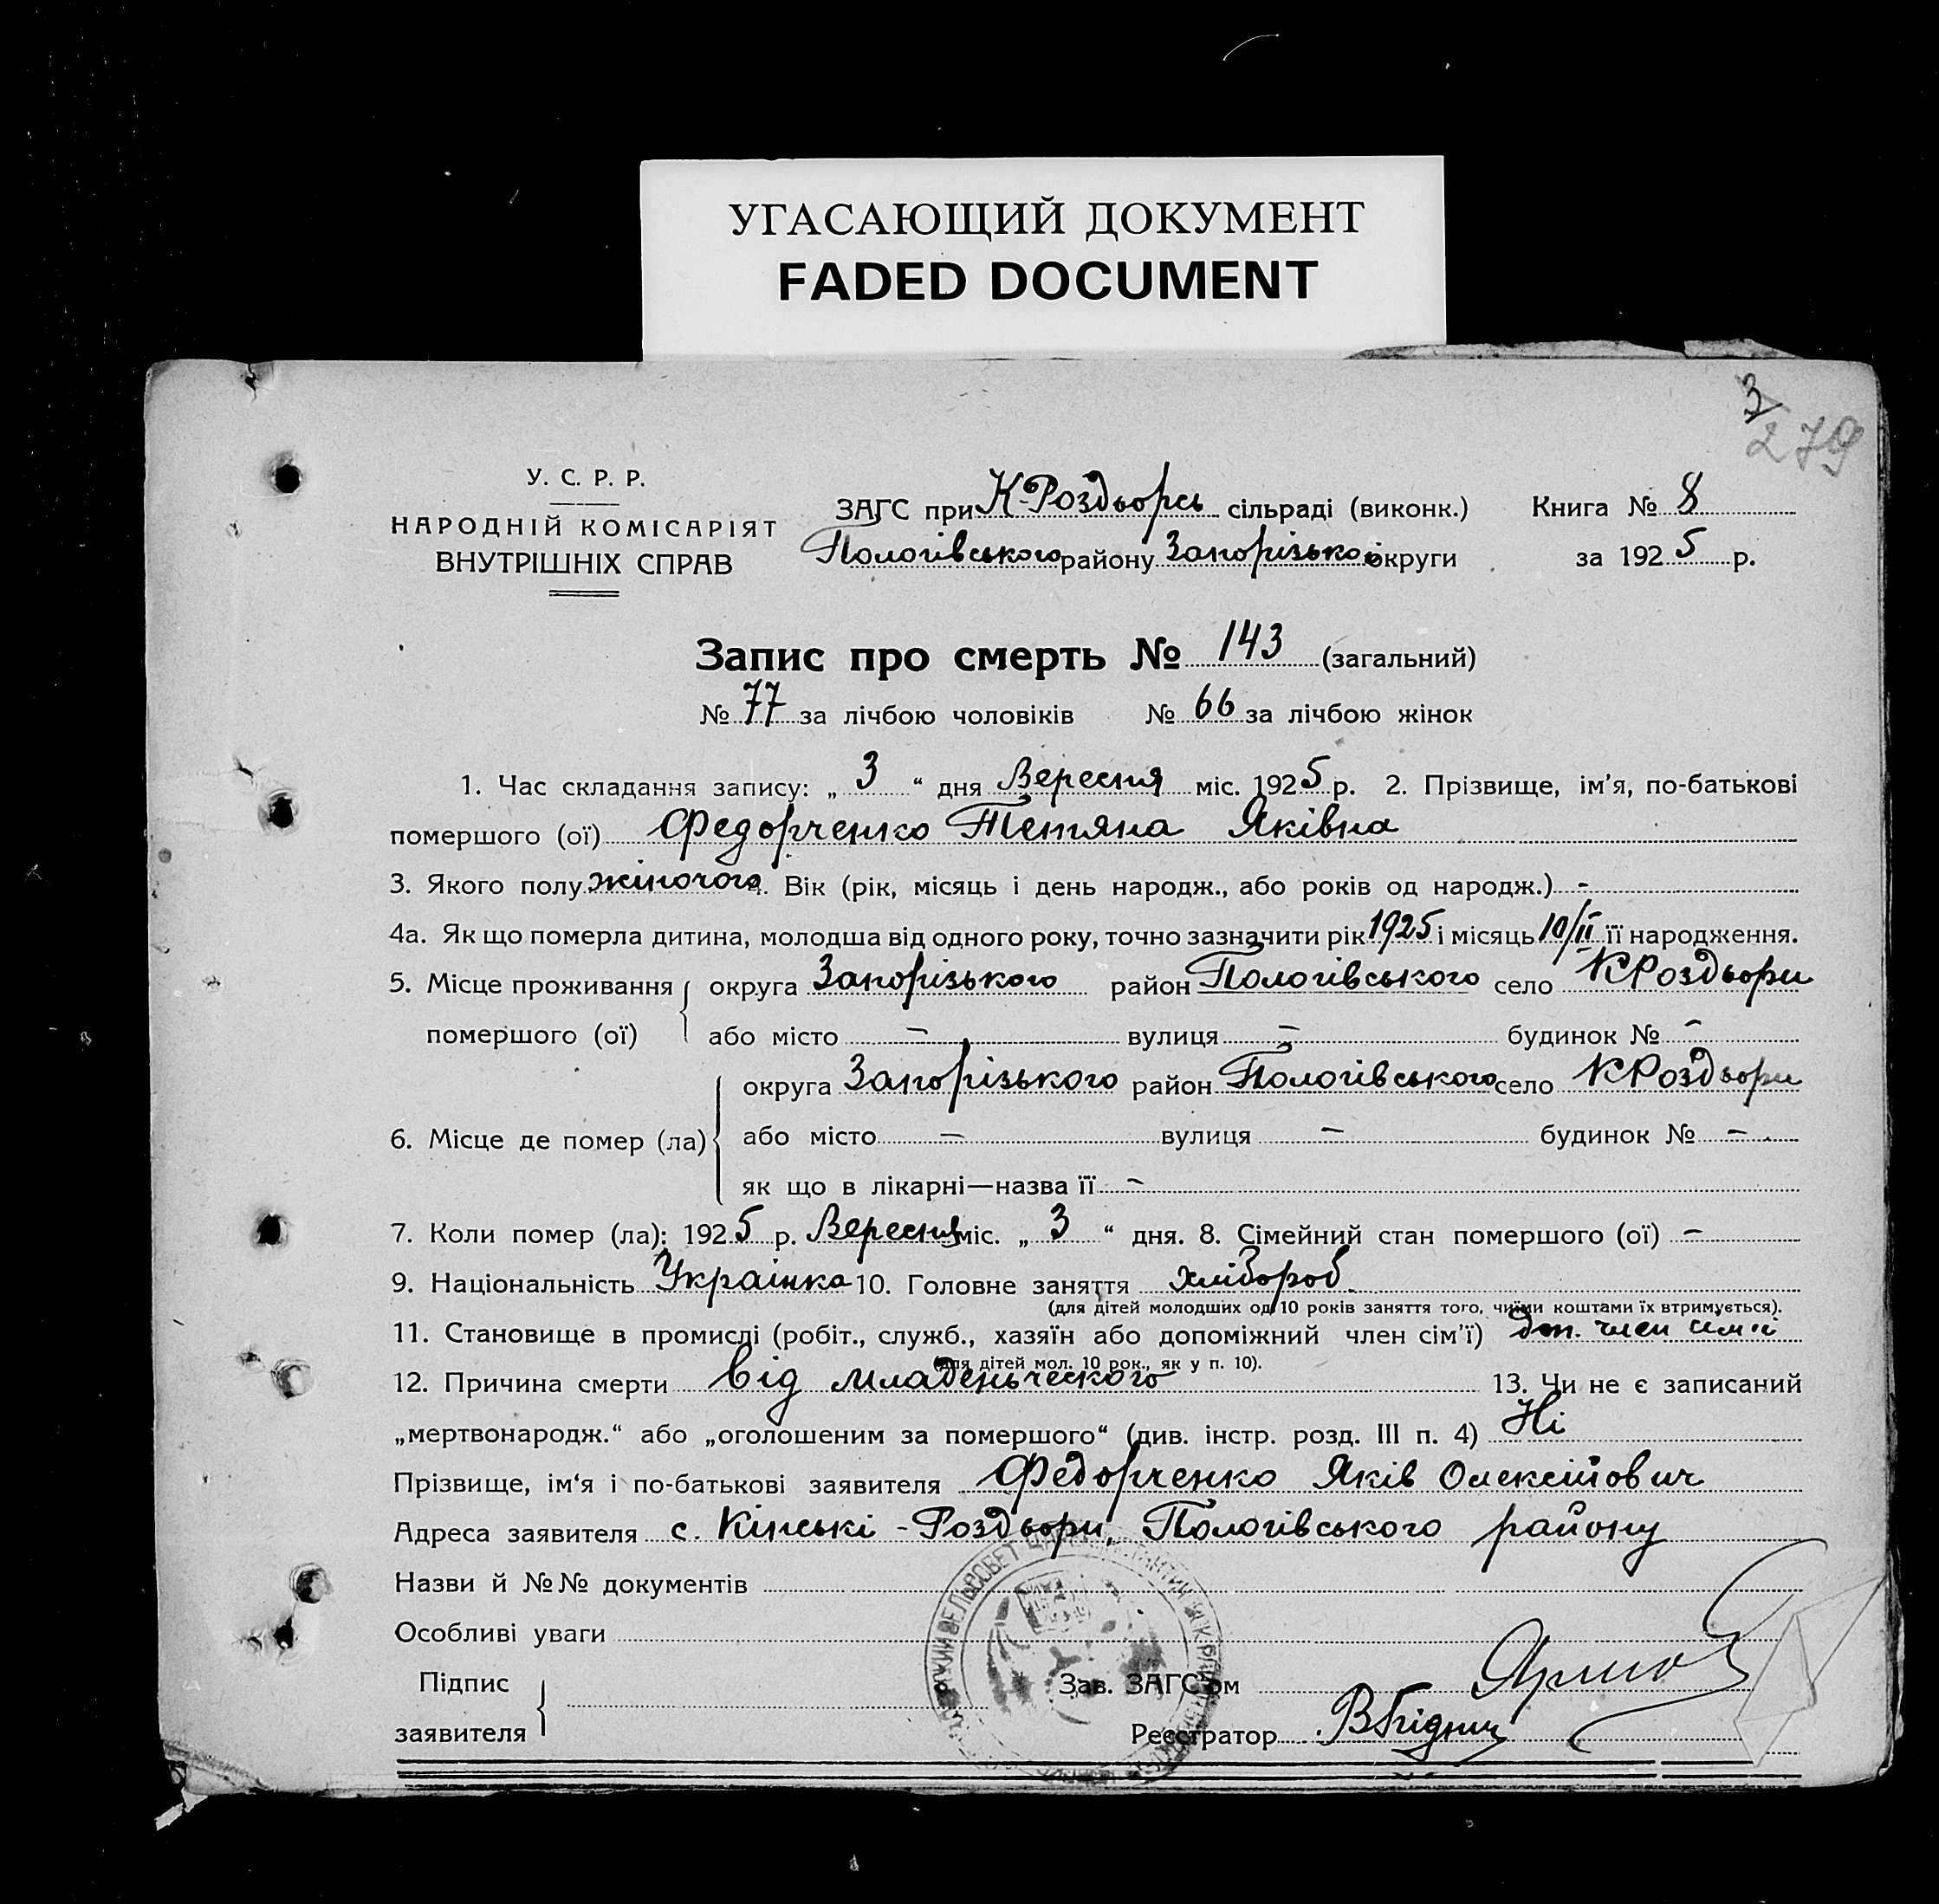 УГАСАЮЩИЙ ДОКУМЕНТ
FADED DOCUMENT
3
279
У. С. Р. Р.
НАРОДНІЙ КОМІСАРІЯТ
ВНУТРІШНІХ СПРАВ
ЗАГС при К-Роздорсь сільраді (виконк.) Книга № 8
Пологівського району Запорізької округи за 1925 р.
Запис про смерть № 143 (загальний)
№ 77 за лічбою чоловіків № 66 за лічбою жінок
1. Час складання запису: „ 3 “ дня Вересня міс. 1925 р. 2. Прізвище, ім'я, по-батькові
помершого (ої) Федорченко Тетяна Яківна
3. Якого полу жіночого 4. Вік (рік, місяць і день народж., або років од народж.) -
4а. Як що померла дитина, молодша від одного року, точно зазначити рік 1925 і місяць 10/II її народження.
5. Місце проживання округа Запорізького район Пологівського село КРоздьори
помершого (ої) або місто — вулиця — будинок № —
округа Запорізького район Пологівського село КРоздьори
6. Місце де помер (ла) або місто — вулиця — будинок № —
як що в лікарні—назва її —
7. Коли помер (ла): 1925 р. Вересня міс. „ 3 “ дня. 8. Сімейний стан помершого (ої) —
9. Національність Українка 10. Головне заняття хлібороб
(для дітей молодших од 10 років заняття того, чиїми коштами їх втримується).
11. Становище в промислі (робіт., служб., хазяїн або допоміжний член сім'ї) доп. член сім'ї
(для дітей мол. 10 рок., як у п. 10).
12. Причина смерти від младеньческого 13. Чи не є записаний
„мертвонародж.“ або „оголошеним за помершого“ (див. інстр. розд. III п. 4) Ні
Прізвище, ім'я і по-батькові заявителя Федорченко Яків Олексійович
Адреса заявителя с. Кінські-Роздьори, Пологівського району
Назви й №№ документів
Особливі уваги
Підпис
заявителя
Зав. ЗАГС'ом
Реєстратор